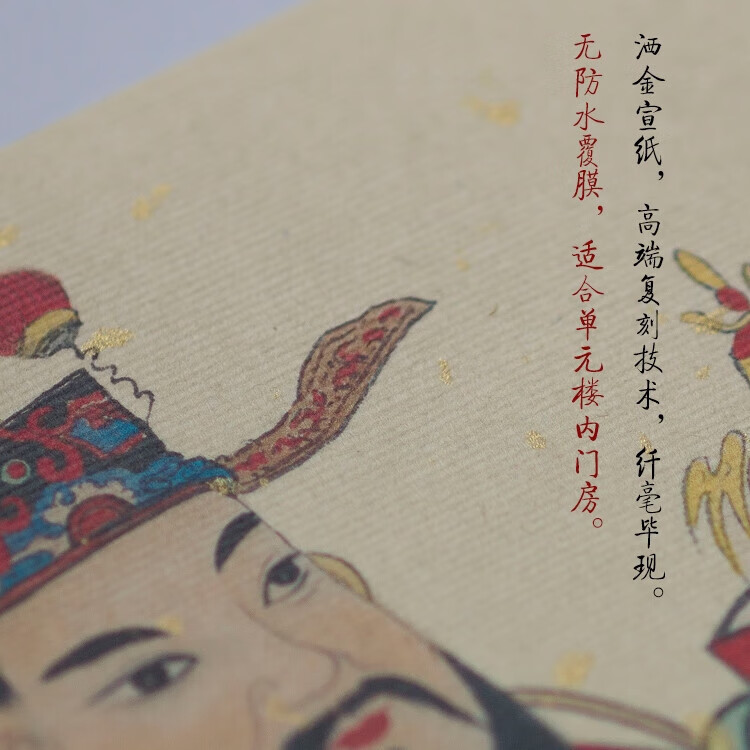 洒金宣纸，高端复刻技术，纤毫毕现。
无防水覆膜，适合单元楼内门房。